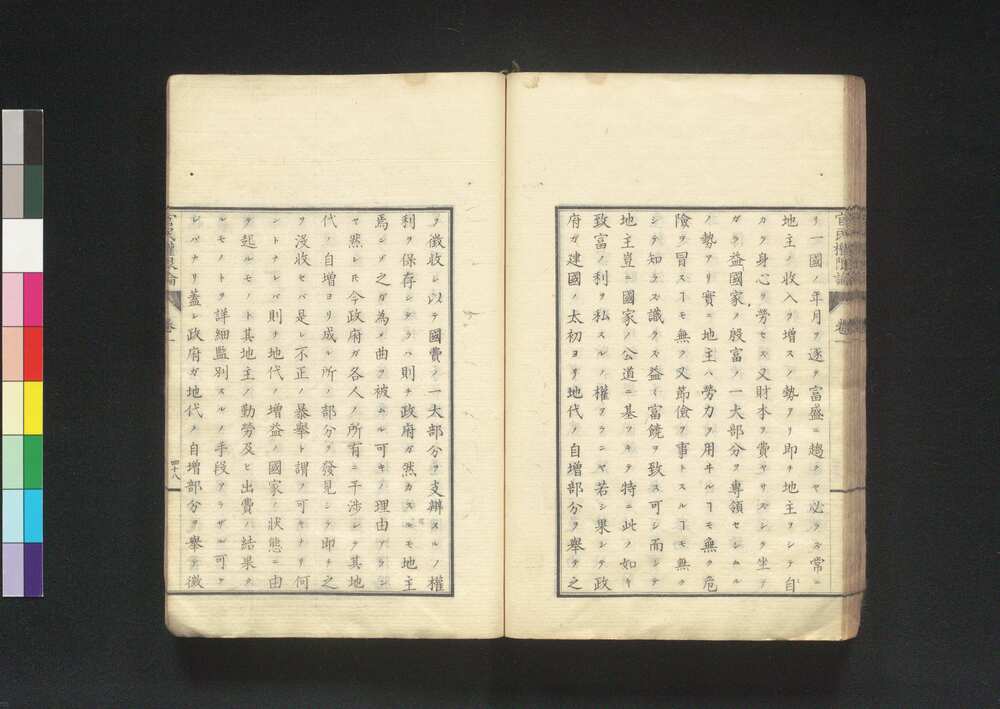 リ一國ノ年月ヲ逐テ富盛ニ趨クヤ必ラズ常ニ
地主ノ收入ヲ增スノ勢アリ即チ地主ヲシテ自
カラ身心ヲ勞セス又財本ヲ費ヤサズシテ坐テ
ガラ益國家ノ殷富ノ一大部分ヲ專領セシムル
ノ勢アリ實ニ地主ハ勞力ヲ用ヰルヿモ無ク危
險ヲ冒スヿモ無ク又節儉ヲ事トスルヿモ無ク
シテ知ラズ識ラズ益〻富饒ヲ致ス可シ而シテ
地主豈ニ國家ノ公道ニ基ヅキテ特ニ此ノ如キ
致富ノ利ヲ私スルノ權アランヤ若シ果シテ政
府ガ建國ノ太初ヨリ地代ノ自增部分ヲ擧テ之
官民權限論
卷一
ヲ徵收シ以テ國費ノ一大部分ヲ支辦スルノ權
利ヲ保存シシラハ則チ政府ガ然カスルモ地主
焉ンゾ之ガ為メ曲ヲ被ムル可キノ理由アラン
ヤ然レ𪜈今政府ガ各人ノ所有ニ干涉シテ其地
代ノ自增ヨリ成ル所ノ部分ヲ發見シテ即チ之
ヲ沒收セバ是レ不正ノ暴擧ト謂フ可キナリ何
ントナレバ則チ地代ノ增益ノ國家ノ狀態ニ由
テ起ルモノト其地主ノ勤勞及ヒ出費ノ結果タ
ルモノトヲ詳細監別スルノ手段アラザル可ケ
レバナリ蓋レ政府ガ地代ノ自增部分ヲ擧テ徵
官民權限論
卷一
四十八